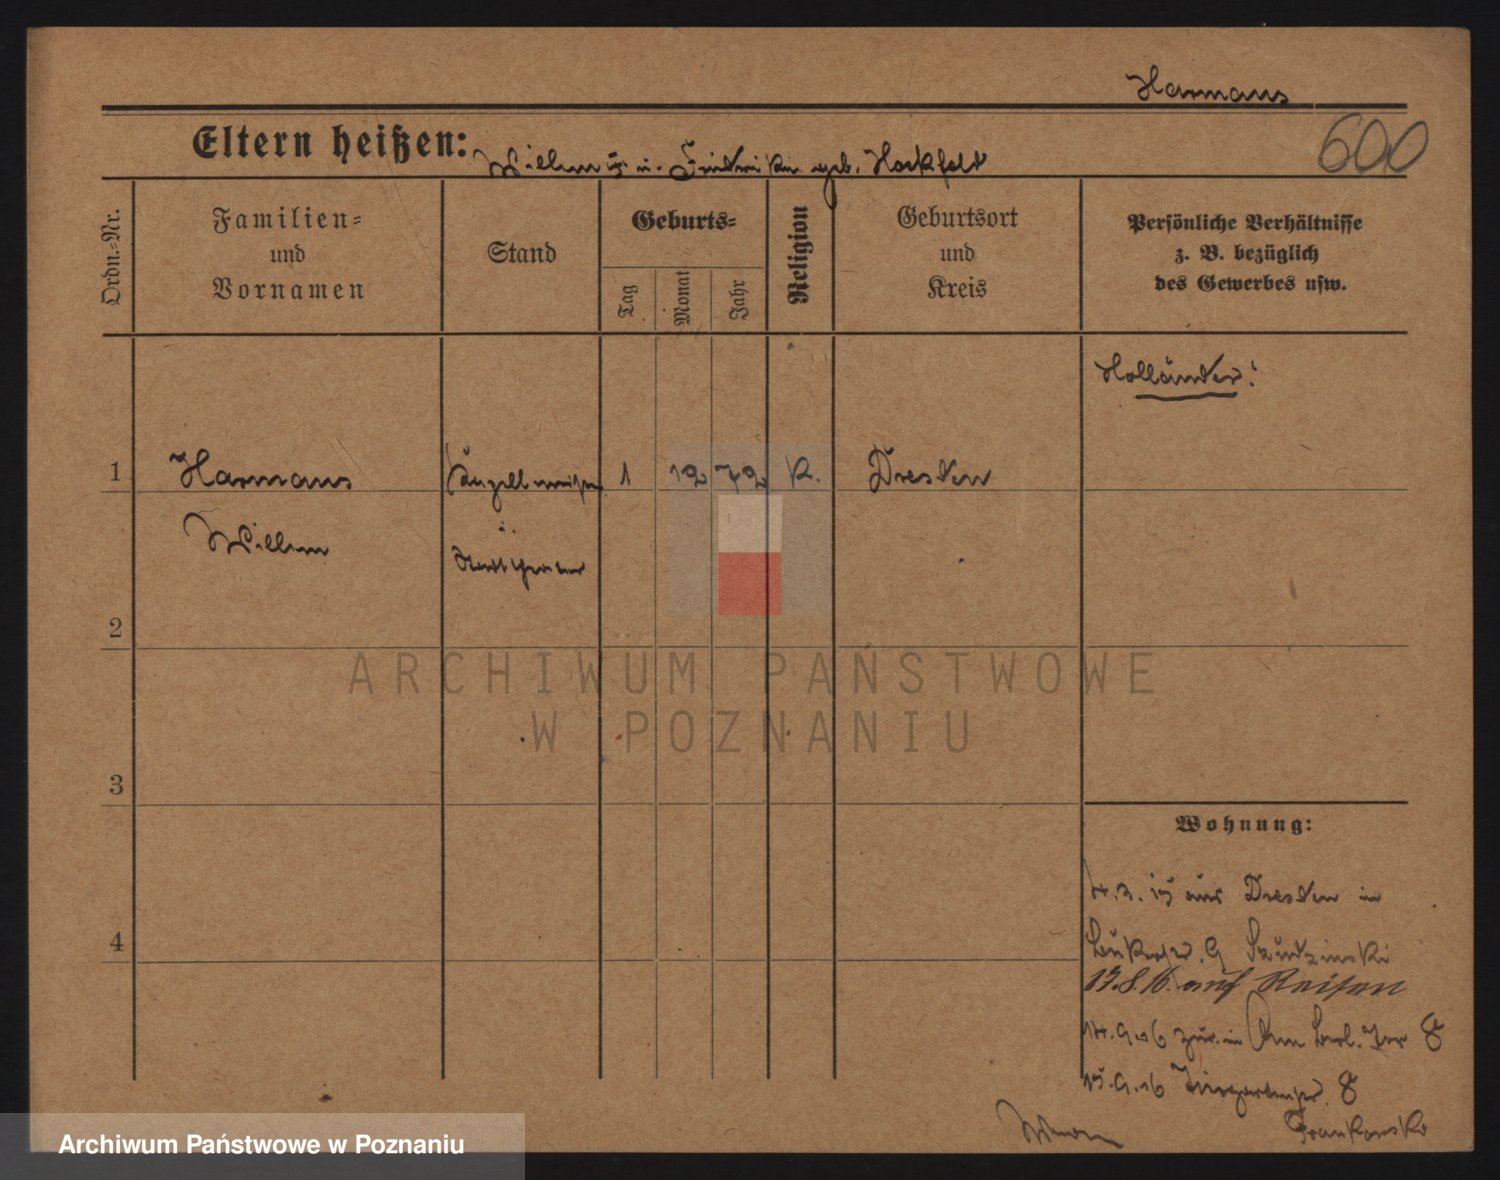 Harmans
600
Eltern heißen: Willem u. Friedrike geb. Hockfeld
Ordn.-Nr.
Familien-
und
Vornamen
Stand
Geburts-
Tag
Monat
Jahr
Religion
Geburtsort
und
Kreis
Persönliche Verhältnisse
z. B. bezüglich
des Gewerbes usw.
Holländer!
1 Harmans 1 12 72 K. Dresden
Willem
u.
2
ARCHIWUM PAŃSTWOWE
W POZNANIU
3
Wohnung:
4.3.15 aus Dresden in
4
17.8.16. auf Reisen
14.9.16 zur. in Am Berl. Tor 8
15.9.16 Tiergartenstr. 8
Frankowski
Archiwum Państwowe w Poznaniu